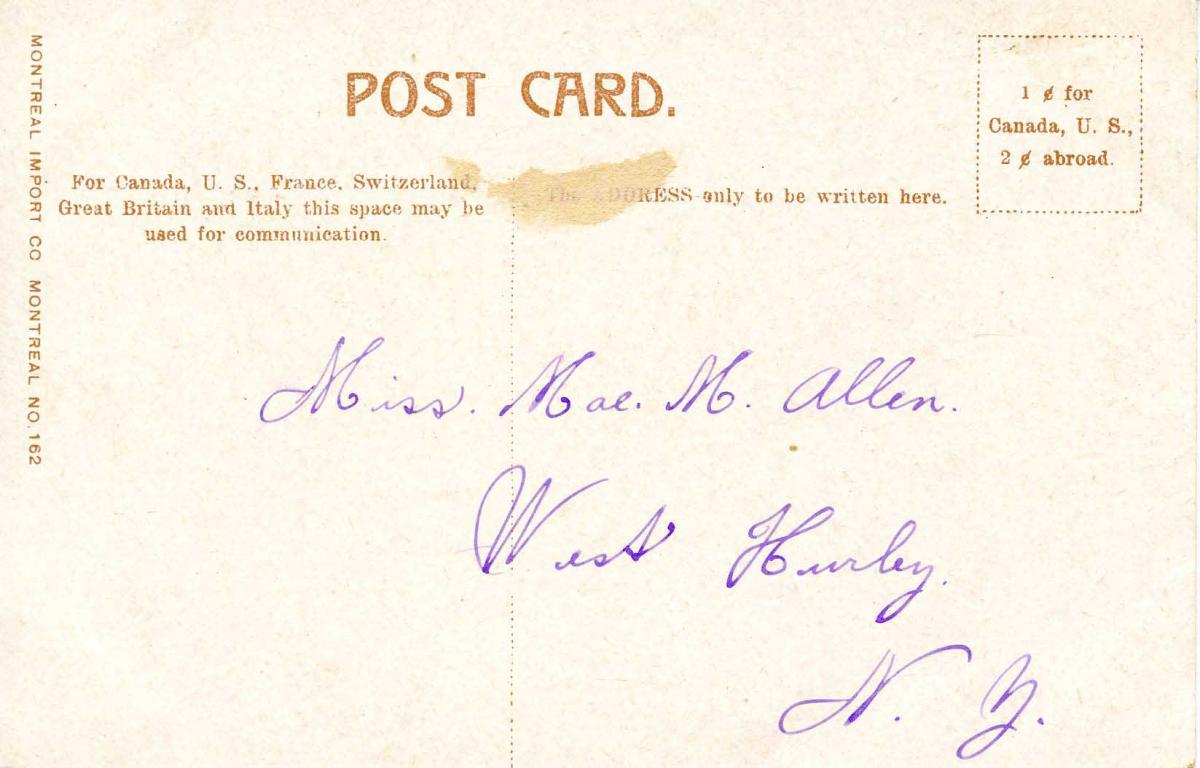 MONTREAL IMPORT CO MONTREAL NO. 162
POST CARD.
1 ¢ for
Canada, U. S.,
2 ¢ abroad.
For Canada, U. S., France, Switzerland,
Great Britain and Italy this space may be
used for communication.
The ADDRESS only to be written here.
Miss. Mae. M. Allen.
West Hurley.
N. Y.